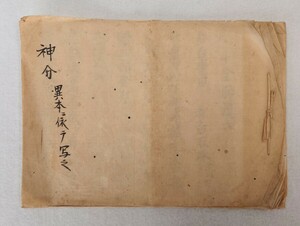 神分
異本ニ依テ写之